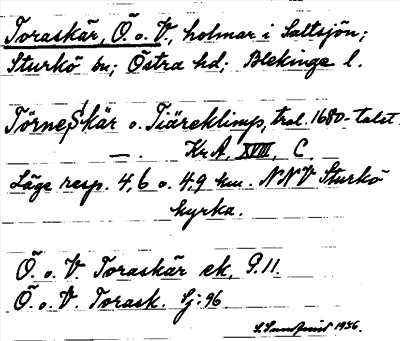 Toraskär, Ö. o. V., holmar i Saltsjön;
Sturkö sn; Östra hd; Blekinge l.
Törneskär o. Tiäreklimp, trol. 1680-talet
—. Kr. A. XVIII, C
Läge resp. 4,6 o. 4,9 km. NNV Sturkö
kyrka.
Ö. o. V. Toraskär ek. 9.11.
Ö. o. V. Torask. Sj: 96
1936.